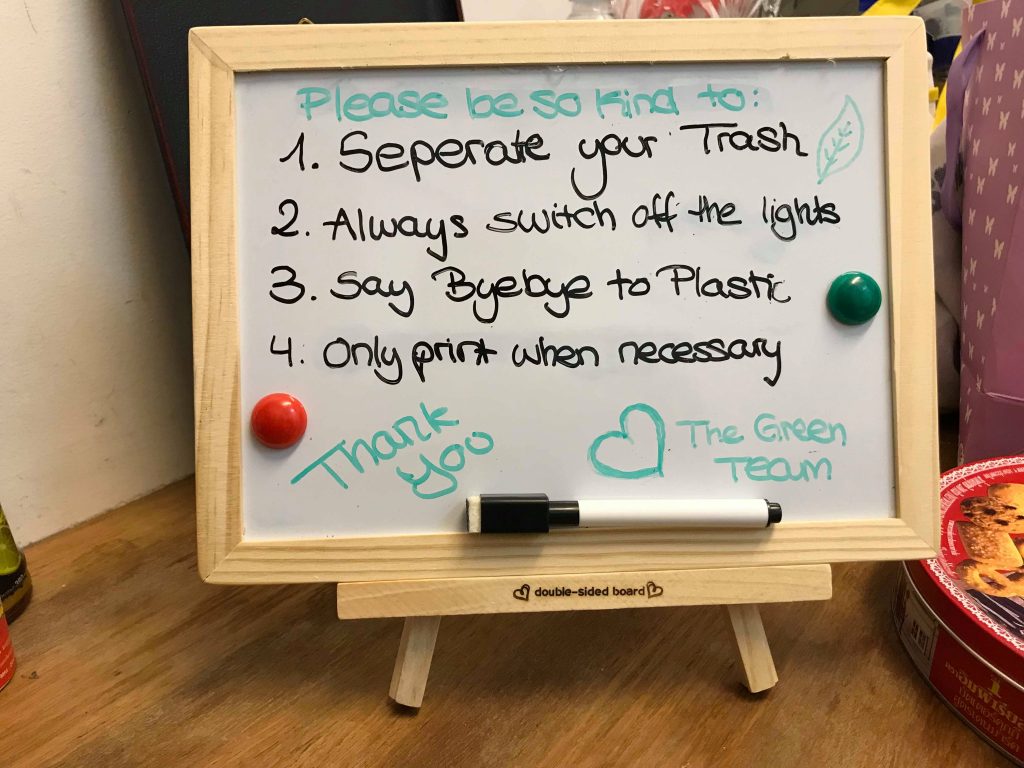 Please be so kind to:
1. Seperate your Trash
2. Always switch off the lights
3. Say Byebye to Plastic
4. Only print when necessary
Thank
you
The Green
Team
double-sided board